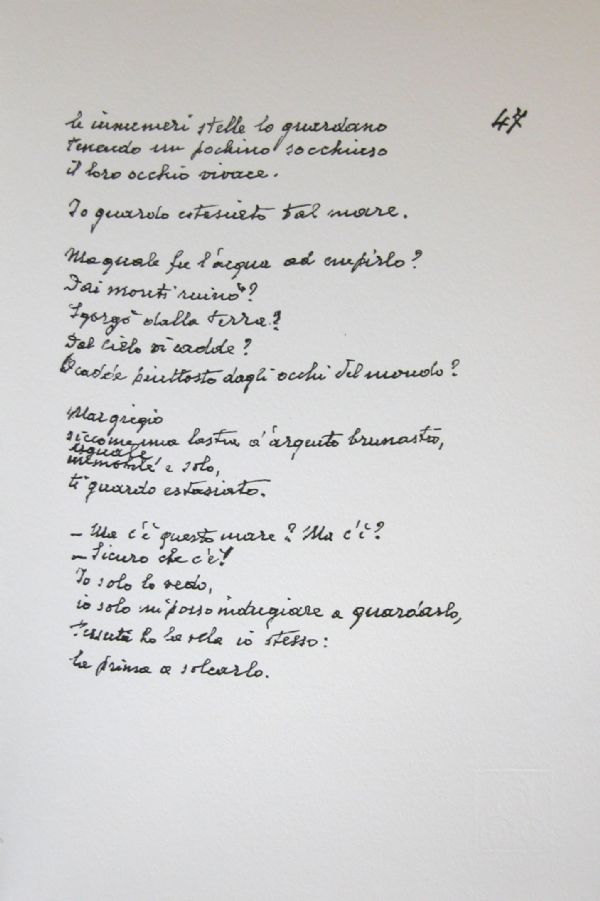 47
le innumeri stelle lo guardano
tenendo un pochino socchiuso
il loro occhio vivace.
Io guardo estasiato tal mare.
Ma quale fu l'acqua ad empirlo?
Dai monti ruinò?
Sgorgò dalla terra?
Dal cielo vi cadde?
O cadde piuttosto dagli occhi del mondo?
Mar grigio
siccome una lastra d'argento brunastro,
uguale
e solo,
ti guardo estasiato.
– Ma c'è questo mare? Ma c'è?
– Sicuro che c'è!
Io solo lo vedo,
io solo mi posso indugiare a guardarlo,
tessuta ho la vela io stesso:
la prima a solcarlo.